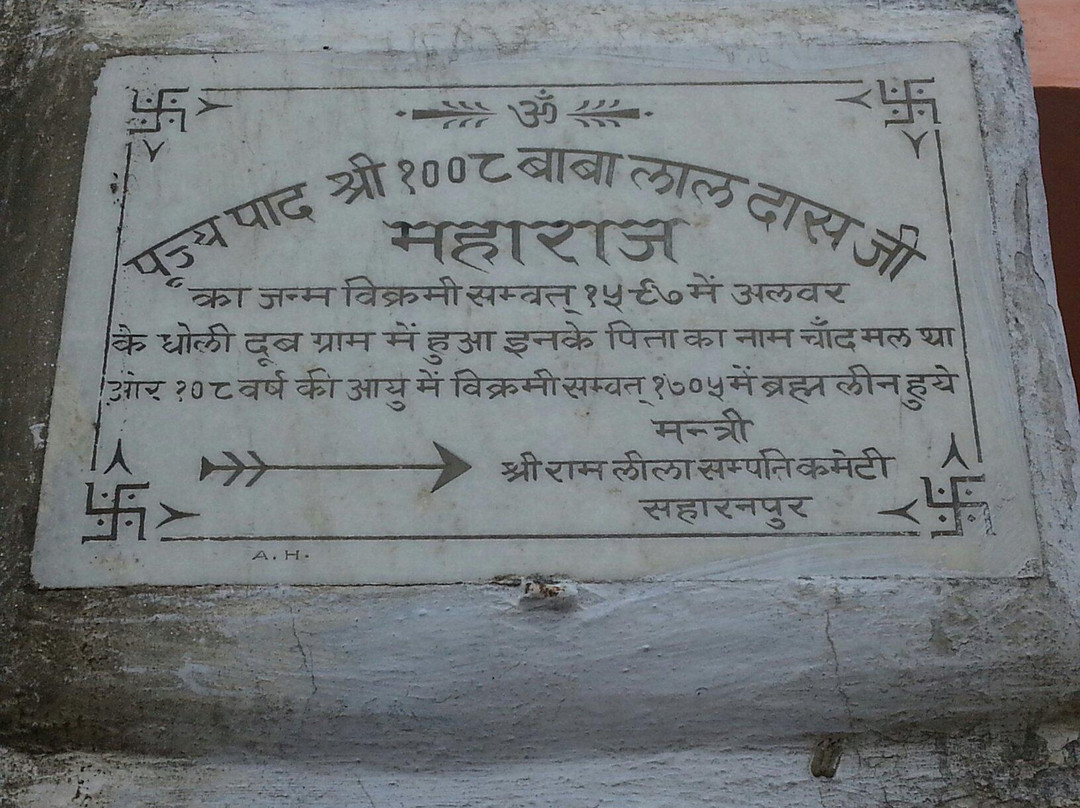 ॐ
पूज्य पाद श्री १००८ बाबा लाल दास जी
महाराज
का जन्म विक्रमी सम्वत् १५९७ में अलवर
के धोली दूब ग्राम में हुआ इनके पिता का नाम चाँद मल था
और १०८ वर्ष की आयु में विक्रमी सम्वत् १७०५ में ब्रह्म लीन हुये
मन्त्री
श्री राम लीला सम्पति कमेटी
सहारनपुर
A.H.